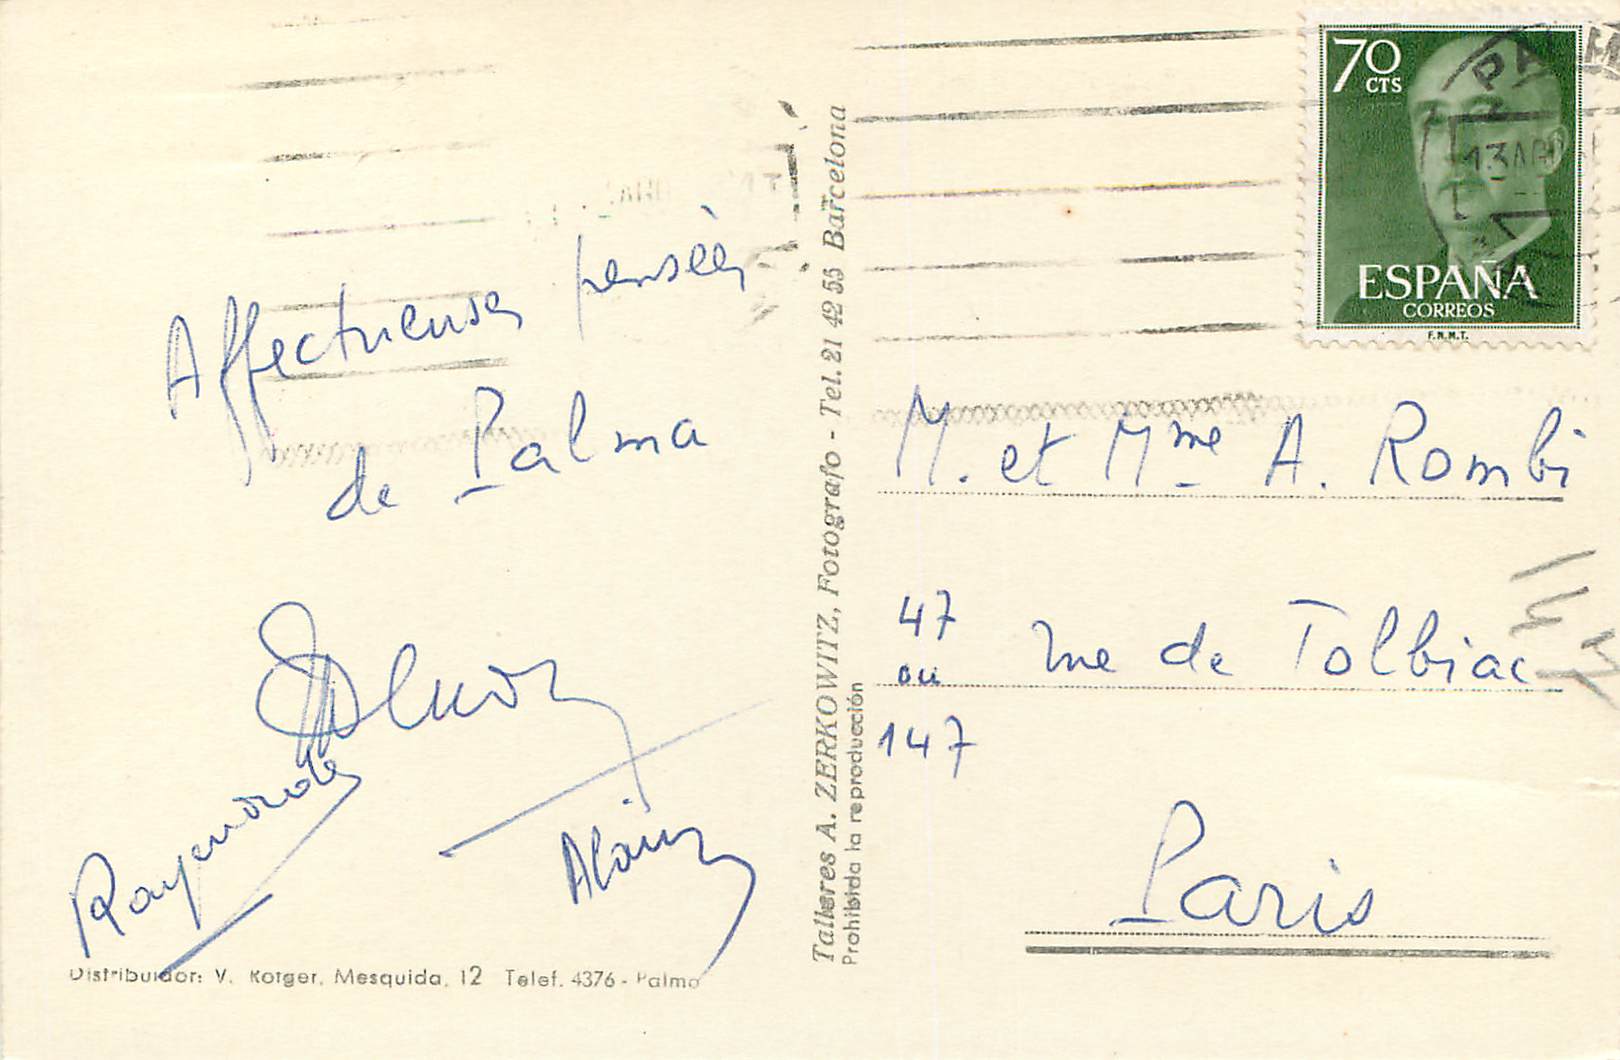 Affectueuses pensées
de Palma
Raymonde
Alain
Distribuidor: V. Rotger, Mesquida, 12 Telef. 4376 - Palma
Talleres A. ZERKOWITZ, Fotografo - Tel. 21 42 55 Barcelona
Prohibida la reproducción
70
CTS
ESPAÑA
CORREOS
F.N.M.T.
13
M. et Mme A. Rombi
47
ou
147
rue de Tolbiac
Paris